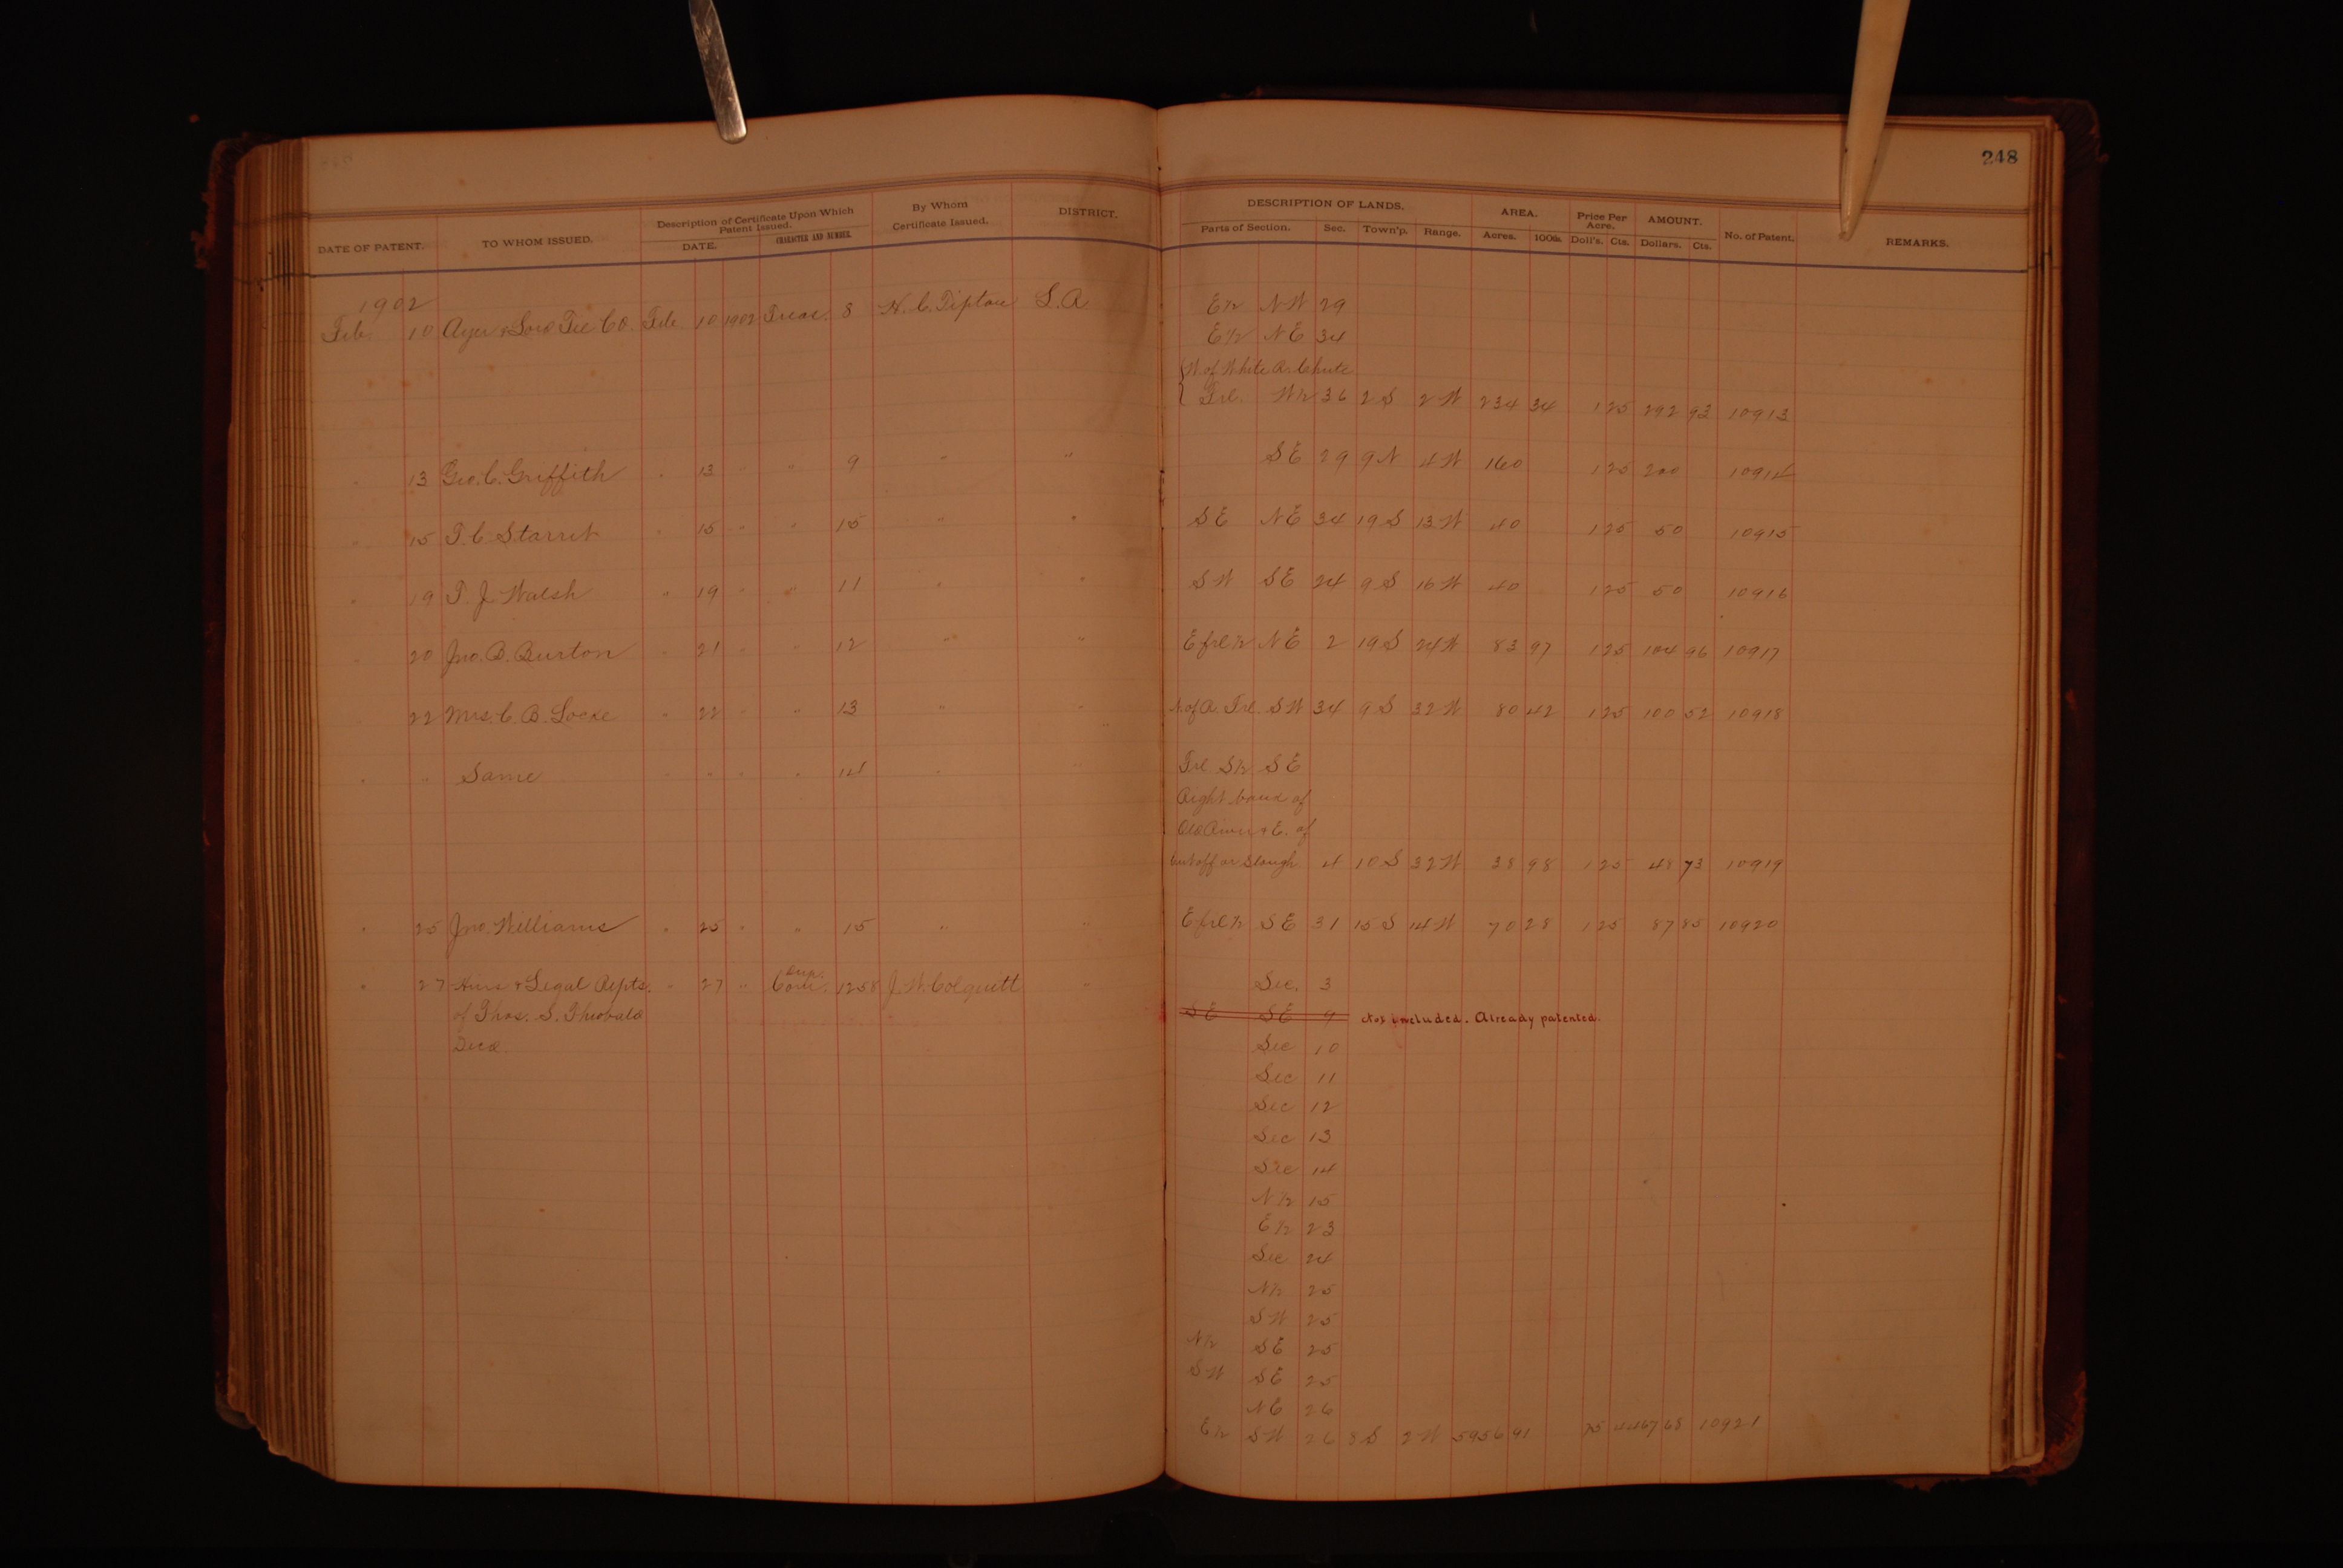 248
DATE OF PATENT. TO WHOM ISSUED. Description of Certificate Upon Which Patent Issued. DATE. CHARACTER AND NUMBER. By Whom Certificate Issued. DISTRICT. DESCRIPTION OF LANDS. Parts of Section. Sec. Town'p. Range. AREA. Acres. 100ths. Price Per Acre. Doll's. Cts. AMOUNT. Dollars. Cts. No. of Patent. REMARKS.
1902
Feb. 10 Ayer & Lord Tie Co. Feb. 10 1902 Treas. 8 H. C. Tipton S. R E½ NW 29
E½ NE 34
W. of White R. Chute
Frl. W½ 36 2 S 2 W 234 34 1 25 292 93 10913
" 13 Geo. C. Griffith " 13 " " 9 " " SE 29 9 N 4 W 160 1 25 200 10914
" 15 T. C. Starrit " 15 " " 15 " " SE NE 34 19 S 13 W 40 1 25 50 10915
" 19 T. J. Walsh " 19 " " 11 " " SW SE 24 9 S 16 W 40 1 25 50 10916
" 20 Jno. B. Burton " 21 " " 12 " " E frl ½ NE 2 19 S 24 W 83 97 1 25 104 96 10917
22 Mrs. C. B. Locke " 22 " " 13 " " of R. Frl. SW 34 9 S 32 W 80 42 1 25 100 52 10918
" " Same " " " " 14 " " Frl. S½ SE
Right bank of
Old River & E. of
Cutoff or Slough 4 10 S 32 W 38 98 1 25 48 73 10919
" 25 Jno. Williams " 25 " " 15 " " E frl ½ SE 31 15 S 14 W 70 28 1 25 87 85 10920
" 27 Heirs & Legal Repts. " 27 " Com. 1258 J. W. Colquitt " Sec. 3
of Thos. S. Theobald SE SE 9 Not included. Already patented.
Decd. Sec 10
Sec 11
Sec 12
Sec 13
Sec 14
N½ 15
E½ 23
Sec 24
N½ 25
SW 25
N½ SE 25
SW SE 25
NE 26
E½ SW 26 8 S 2 W 5956 91 75 4467 68 10921